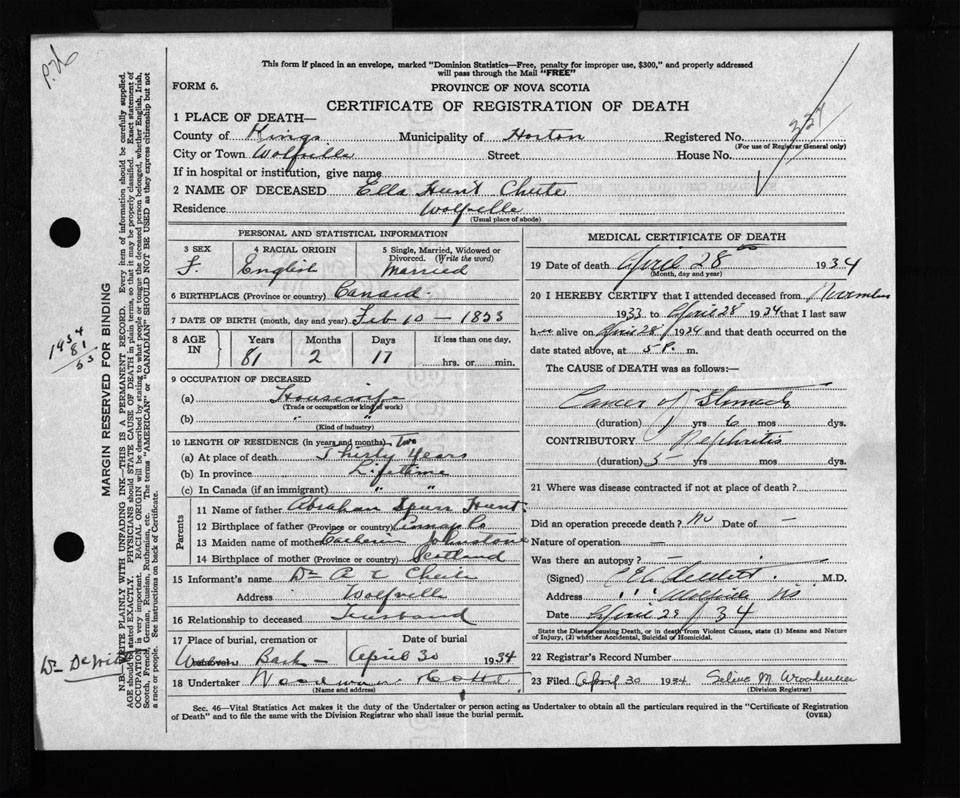 This form if placed in an envelope, marked "Dominion Statistics—Free, penalty for improper use, $300," and properly addressed
will pass through the Mail "FREE"
FORM 6.
PROVINCE OF NOVA SCOTIA
CERTIFICATE OF REGISTRATION OF DEATH
1 PLACE OF DEATH—
County of Kings Municipality of Horton Registered No.
(For use of Registrar General only)
City or Town Wolfville Street House No.
If in hospital or institution, give name
2 NAME OF DECEASED Ella Hunt Chute
Residence Wolfville
(Usual place of abode)
PERSONAL AND STATISTICAL INFORMATION
3 SEX 4 RACIAL ORIGIN 5 Single, Married, Widowed or
Divorced. (Write the word)
F. English Married
6 BIRTHPLACE (Province or country) Canard
7 DATE OF BIRTH (month, day and year) Feb 10 — 1853
8 AGE IN Years Months Days If less than one day,
81 2 17 hrs. or min.
9 OCCUPATION OF DECEASED
(a) Housewife
(Trade or occupation or kind of work)
(b) " "
(Kind of industry)
10 LENGTH OF RESIDENCE (in years and months) Two
(a) At place of death Thirty Years
(b) In province Lifetime
(c) In Canada (if an immigrant) " "
Parents
11 Name of father Abraham Spurr Hunt
12 Birthplace of father (Province or country) Annap Co
13 Maiden name of mother Johnstone
14 Birthplace of mother (Province or country) Scotland
15 Informant's name Dr A C Chute
Address Wolfville
16 Relationship to deceased Husband
17 Place of burial, cremation or Date of burial
April 30 1934
18 Undertaker
(Name and address)
MEDICAL CERTIFICATE OF DEATH
19 Date of death April 28 1934
(Month, day and year)
20 I HEREBY CERTIFY that I attended deceased from November
1933 to April 28 1934 that I last saw
h alive on April 28 1934 and that death occurred on the
date stated above, at 5 P. m.
The CAUSE of DEATH was as follows:—
Cancer of Stomach
(duration) yrs 6 mos dys.
CONTRIBUTORY Nephritis
(duration) 5 yrs mos dys.
21 Where was disease contracted if not at place of death?
Did an operation precede death? No Date of —
Nature of operation —
Was there an autopsy? —
(Signed) DeWitt M.D.
Address Wolfville NS
Date April 29 / 34
State the Disease causing Death, or in death from Violent Causes, state (1) Means and Nature
of Injury, (2) whether Accidental, Suicidal or Homicidal.
22 Registrar's Record Number
23 Filed April 30 1934 M
(Division Registrar)
Sec. 46—Vital Statistics Act makes it the duty of the Undertaker or person acting as Undertaker to obtain all the particulars required in the "Certificate of Registration
of Death" and to file the same with the Division Registrar who shall issue the burial permit. (OVER)
MARGIN RESERVED FOR BINDING
N.B.—WRITE PLAINLY WITH UNFADING INK—THIS IS A PERMANENT RECORD. Every item of information should be carefully supplied.
AGE should be stated EXACTLY. PHYSICIANS should STATE CAUSE OF DEATH in plain terms, so that it may be properly classified. Exact statement of
OCCUPATION is very important. RACIAL ORIGIN will be described by stating to what people or tongue the deceased person belonged, whether English, Irish,
Scotch, French, German, Russian, Ruthenian, etc. The terms "AMERICAN" or "CANADIAN" SHOULD NOT BE USED as they express citizenship but not
a race or people. See instructions on back of Certificate.
1934
81
53
Dr DeWitt